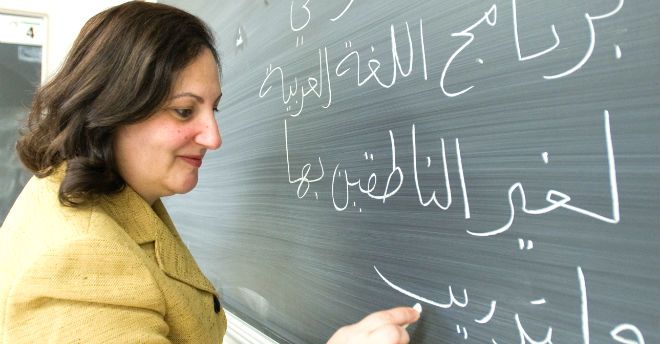 برنامج اللغة العربية
لغير الناطقين بها
والتدريب